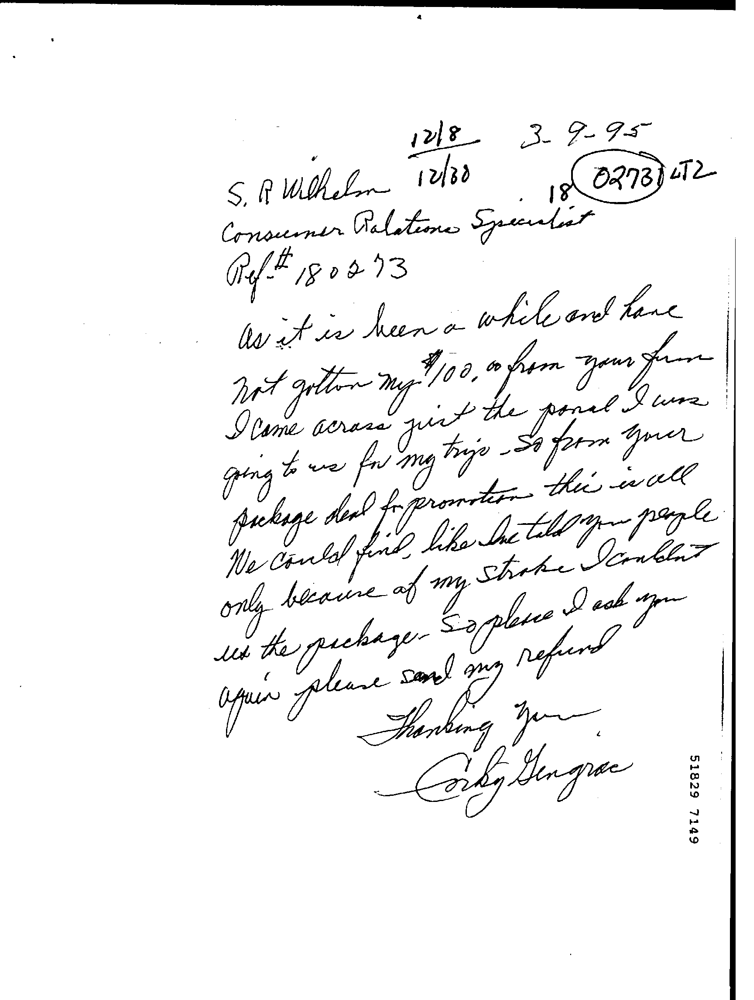 12/8 3-9-95
12/30
S. R Wilhelm 18 02731 LTZ
Consumer Ralations Specialist
Ref-# 180273
as it is been a while and have
not gotton my $100.00 from your firm
I came across just the ponal I was
going to us for my trip - So from your
package deal for promotion this is all
We could find, like Ive told you people
only because of my stroke I couldnt
us the package - So please I ask you
again please send my refund
Thanking you
Corky
51829 7149